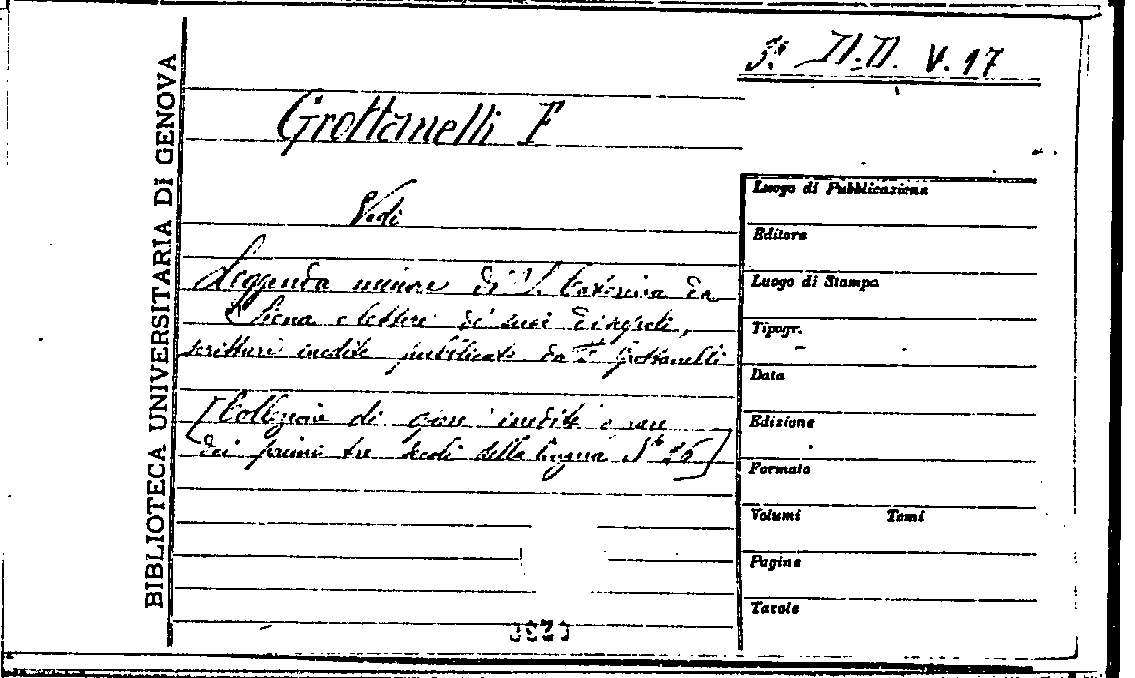 BIBLIOTECA UNIVERSITARIA DI GENOVA
V. 17
Grottanelli F
Vedi
Leggenda minore di S. Caterina da
Siena e lettere di suoi discepoli,
scritture inedite pubblicate da F. Grottanelli
[Collezione di opere inedite o rare
dei primi tre secoli della lingua N°
Luogo di Pubblicazione
Editore
Luogo di Stampa
Tipogr.
Data
Edizione
Formato
Volumi Tomi
Pagine
Tavole